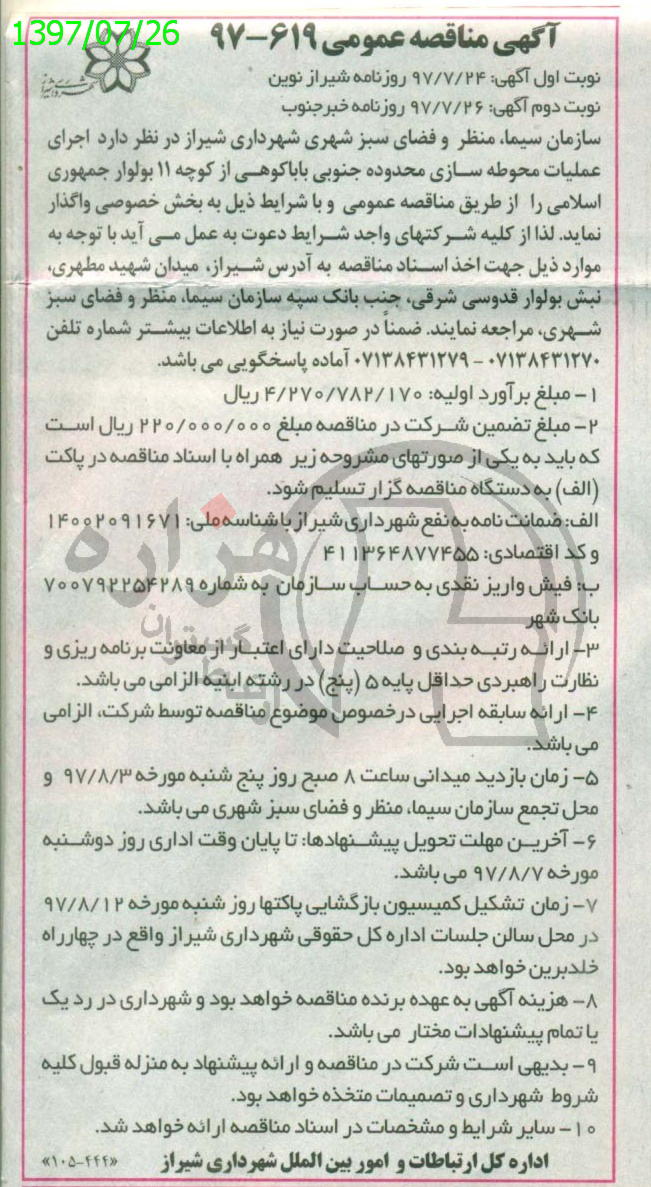 1397/07/26
آگهی مناقصه عمومی ۶۱۹-۹۷
نوبت اول آگهی: ۹۷/۷/۲۴ روزنامه شیراز نوین
نوبت دوم آگهی: ۹۷/۷/۲۶ روزنامه خبرجنوب
سازمان سیما، منظر و فضای سبز شهری شهرداری شیراز در نظر دارد اجرای
عملیات محوطه سازی محدوده جنوبی باباکوهی از کوچه ۱۱ بولوار جمهوری
اسلامی را از طریق مناقصه عمومی و با شرایط ذیل به بخش خصوصی واگذار
نماید. لذا از کلیه شرکتهای واجد شرایط دعوت به عمل می آید با توجه به
موارد ذیل جهت اخذ اسناد مناقصه به آدرس شیراز، میدان شهید مطهری،
نبش بولوار قدوسی شرقی، جنب بانک سپه سازمان سیما، منظر و فضای سبز
شهری، مراجعه نمایند. ضمناً در صورت نیاز به اطلاعات بیشتر شماره تلفن
۰۷۱۳۸۴۳۱۲۷۰ - ۰۷۱۳۸۴۳۱۲۷۹ آماده پاسخگویی می باشد.
۱- مبلغ برآورد اولیه: ۴/۲۷۰/۷۸۲/۱۷۰ ریال
۲- مبلغ تضمین شرکت در مناقصه مبلغ ۲۲۰/۰۰۰/۰۰۰ ریال است
که باید به یکی از صورتهای مشروحه زیر همراه با اسناد مناقصه در پاکت
(الف) به دستگاه مناقصه گزار تسلیم شود.
الف: ضمانت نامه به نفع شهرداری شیراز با شناسه ملی: ۱۴۰۰۲۰۹۱۶۷۱
و کد اقتصادی: ۴۱۱۳۶۴۸۷۷۴۵۵
ب: فیش واریز نقدی به حساب سازمان به شماره ۷۰۰۷۹۲۲۵۴۲۸۹
بانک شهر
۳- ارائه رتبه بندی و صلاحیت دارای اعتبار از معاونت برنامه ریزی و
نظارت راهبردی حداقل پایه ۵ (پنج) در رشته ابنیه الزامی می باشد.
۴- ارائه سابقه اجرایی درخصوص موضوع مناقصه توسط شرکت، الزامی
می باشد.
۵- زمان بازدید میدانی ساعت ۸ صبح روز پنج شنبه مورخه ۹۷/۸/۳ و
محل تجمع سازمان سیما، منظر و فضای سبز شهری می باشد.
۶- آخرین مهلت تحویل پیشنهادها: تا پایان وقت اداری روز دوشنبه
مورخه ۹۷/۸/۷ می باشد.
۷- زمان تشکیل کمیسیون بازگشایی پاکتها روز شنبه مورخه ۹۷/۸/۱۲
در محل سالن جلسات اداره کل حقوقی شهرداری شیراز واقع در چهارراه
خلدبرین خواهد بود.
۸- هزینه آگهی به عهده برنده مناقصه خواهد بود و شهرداری در رد یک
یا تمام پیشنهادات مختار می باشد.
۹- بدیهی است شرکت در مناقصه و ارائه پیشنهاد به منزله قبول کلیه
شروط شهرداری و تصمیمات متخذه خواهد بود.
۱۰- سایر شرایط و مشخصات در اسناد مناقصه ارائه خواهد شد.
اداره کل ارتباطات و امور بین الملل شهرداری شیراز «۱۰۵-۴۴۴»
هزاره